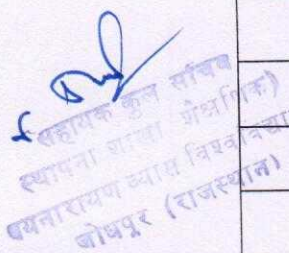 सहायक कुल सचिव
स्थापना शाखा शैक्षणिक)
जयनारायण व्यास विश्वविद्या
जोधपुर (राजस्थान)